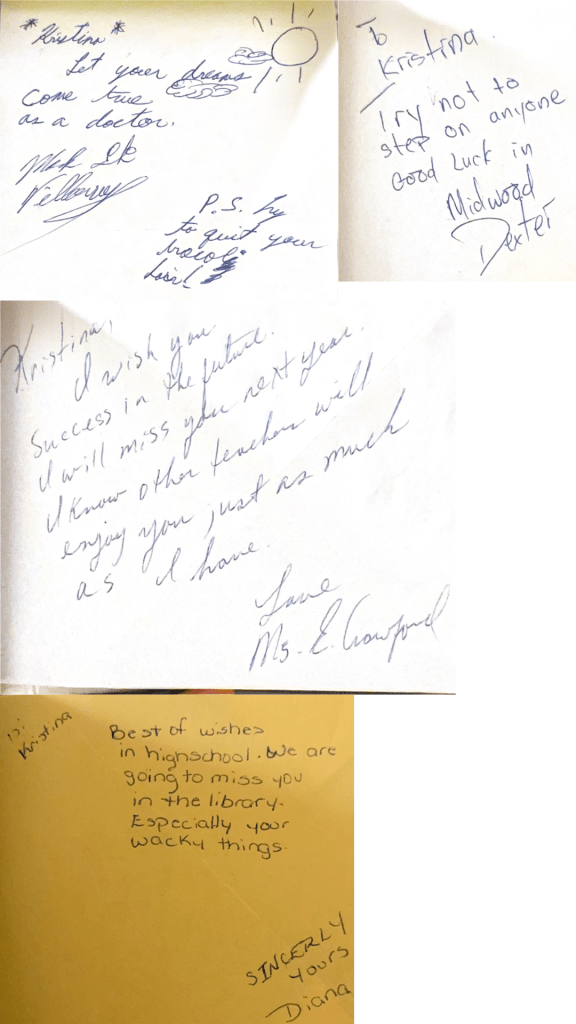 *Kristina*
Let your dreams
come true
as a doctor.
P.S. Try
to quit your
hair!
To
Kristina.
Try not to
step on anyone
Good Luck in
Midwood
Dexter
Kristina,
I wish you
success in the future.
I will miss you next year.
I know other teachers will
enjoy you just as much
as I have.
Love
Ms. E. Crawford
To:
Kristina
Best of wishes
in highschool. We are
going to miss you
in the library.
Especially your
wacky things.
SINCERLY
YOURS
Diana